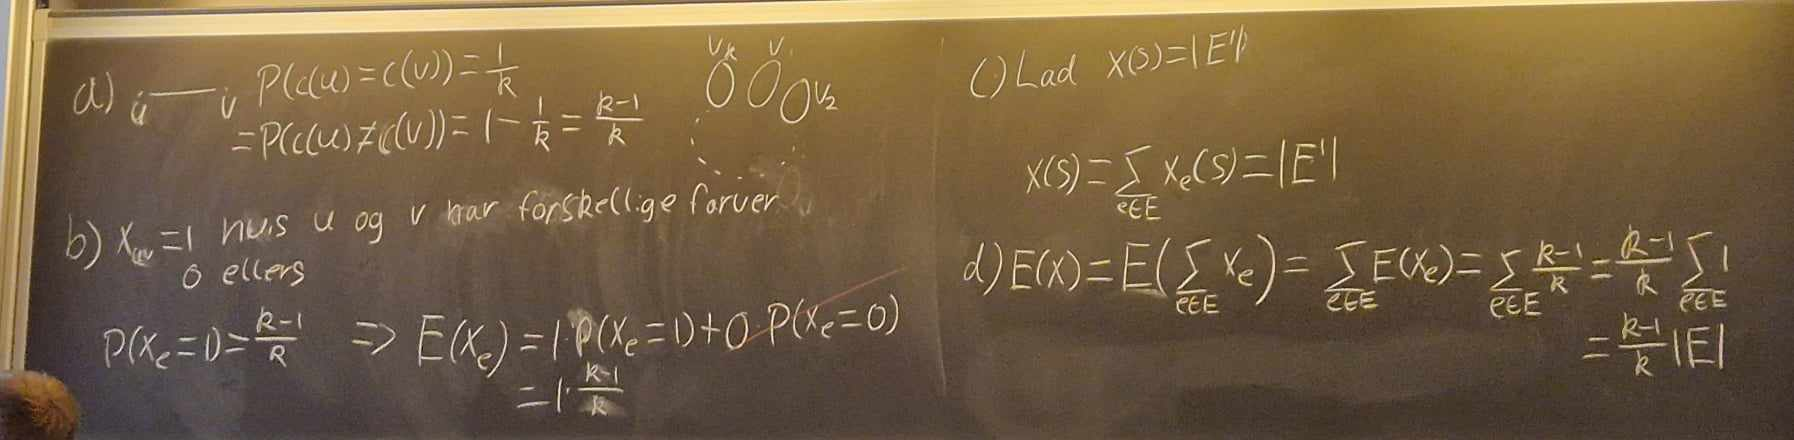 a) u — v P(c(u)=c(v))=1/k
=P(c(u)≠c(v))=1-1/k=k-1/k
Vk V1 V2
b) Xuv=1 hvis u og v har forskellige farver
0 ellers
P(Xe=1)=k-1/k => E(Xe)=1·P(Xe=1)+0·P(Xe=0)
=1·k-1/k
c) Lad X(S)=|E'|
X(S)=∑e∈E Xe(S)=|E'|
d) E(X)=E(∑e∈E Xe)=∑e∈E E(Xe)=∑e∈E k-1/k=k-1/k ∑e∈E 1
=k-1/k |E|